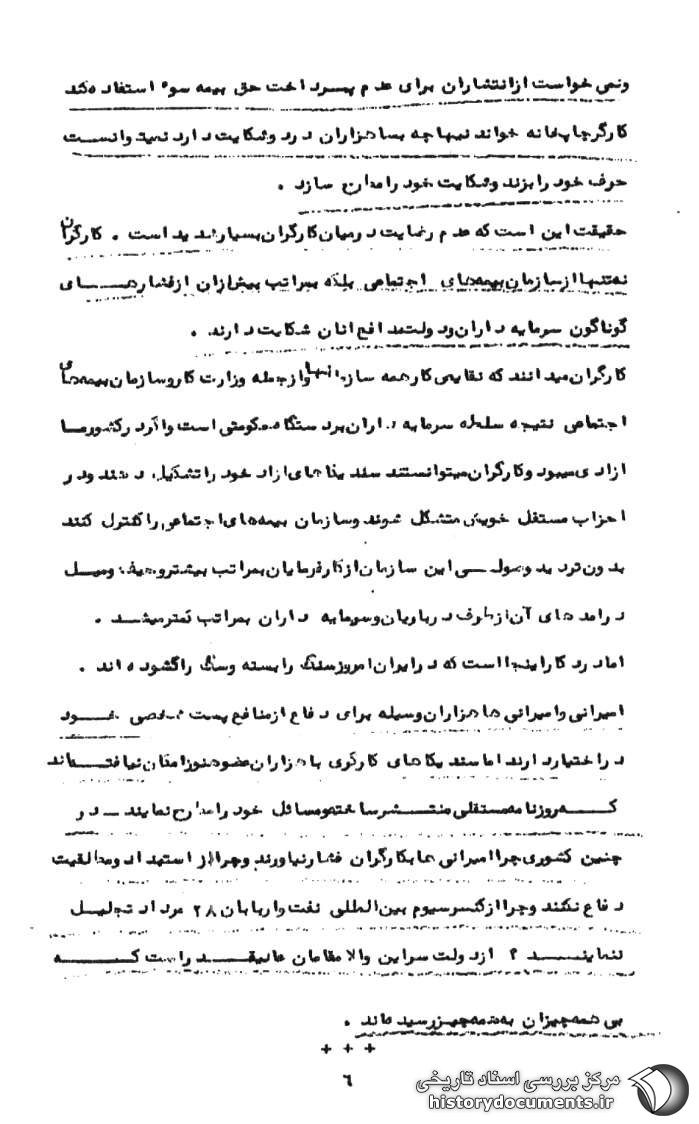 ونمی خواست ازانتشاران برای عدم پسرداخت حق بیمه سوء استفاده کند
کارگرچاپخانه خواند نیها چه بساهزاران درد وشکایت دارد نمیتوانست
حرف خود رابزند وشکایت خود رامطرح سازد .
حقیقت این است که عدم رضایت درمیان کارگران بسیارشدید است . کارگران
نه تنها ازسازمان بیمه های اجتماعی بلکه بمراتب بیش ازان ازفشارهای
گوناگون سرمایه داران ودولت مدافع انان شکایت دارند .
کارگران میدانند که نقایص کارهمه سازمانها وازجمله وزارت کاروسازمان بیمه های
اجتماعی نتیجه سلطه سرمایه داران بردستگاه حکومتی است واگردرکشورما
ازادی میبود وکارگران میتوانستند سندیکاهای ازاد خود راتشکیل دهند ودر
احزاب مستقل خویش متشکل شوند وسازمان بیمه های اجتماعی راکنترل کنند
بدون تردید وصولی این سازمان ازکارفرمایان بمراتب بیشتروحیف ومیل
درامدهای آن ازطرف درباریان وسرمایه داران بمراتب کمترمیشد .
امادرد کاراینجااست که درایران امروزسنگ رابسته وسگ راگشوده اند .
امیرانی وامیرانی هاهزاران وسیله برای دفاع ازمنافع پست شخصی خود
دراختیاردارند اماسندیکاهای کارگری باهزاران عضوهنوزامکان نیافته اند
که روزنامه مستقلی منتشرساخته ومسائل خود رامطرح نمایند ــ در
چنین کشوری چراامیرانی هابکارگران فشارنیاورند وچراازاستبداد ومطلقیت
دفاع نکنند وچراازکنسرسیوم بین المللی نفت واربابان ۲۸ مرداد تجلیل
ننمایند ؟ ازدولت سراین والامقامان عالیقدراست که
بی همه چیزان به همه چیزرسیده اند .
+ + +
٦
مرکز بررسی اسناد تاریخی
historydocuments.ir